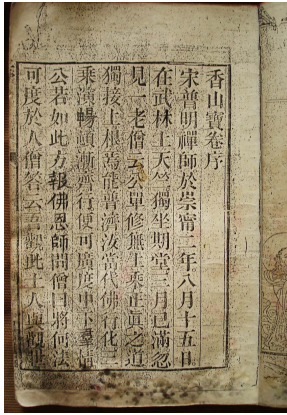 香山寶卷序
宋普明禪師於崇甯二年八月十五日
在武林上天竺獨坐期堂三月已滿忽
見一老僧云公單修無上乘正眞之道
獨接上根焉能普濟汝當代佛行化三
乘演暢頓漸齊行便可廣度中下羣情
公若如此方報佛恩師問僧曰將何法
可度於人僧答云吾觀此土人與觀世